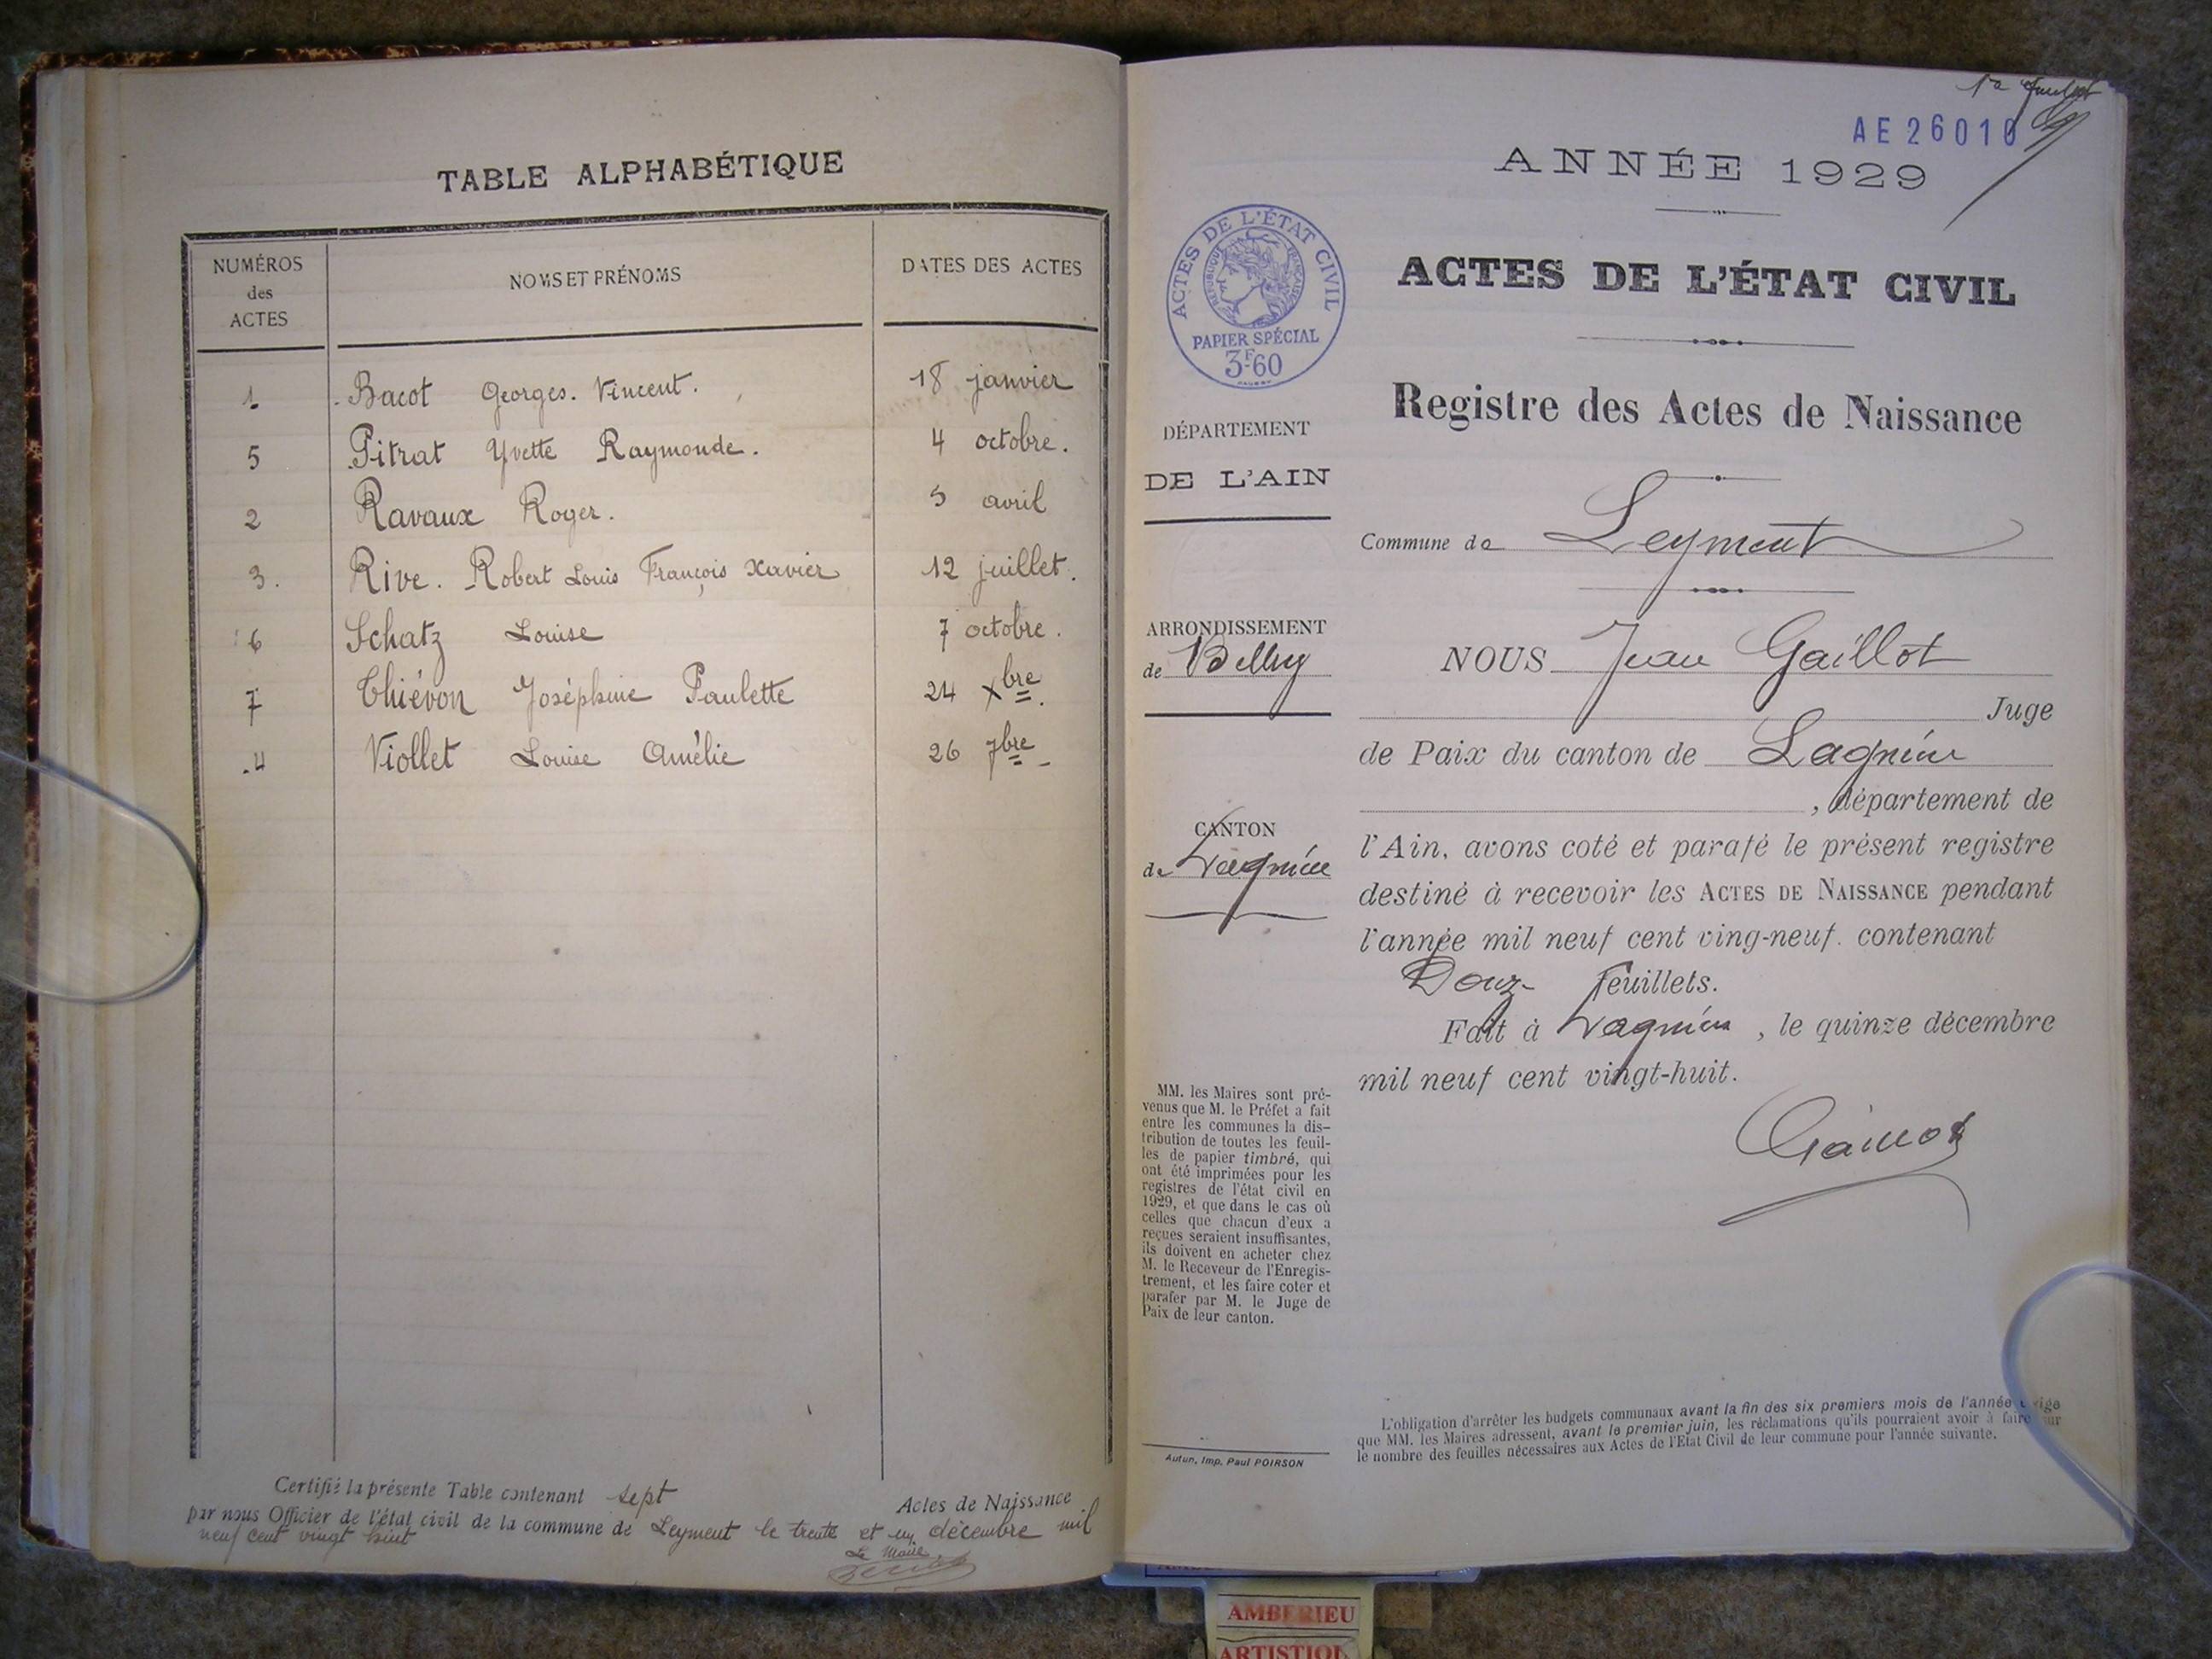 TABLE ALPHABÉTIQUE
NUMÉROS des ACTES
NOMS ET PRÉNOMS
DATES DES ACTES
1 Bacot Georges. Vincent. 18 janvier
5 Pitrat Yvette Raymonde. 4 octobre.
2 Ravaux Roger. 5 avril
3. Rive. Robert Louis François Xavier 12 juillet.
6 Schatz Louise 7 octobre.
7 Thiévon Joséphine Paulette 24 Xbre.
4 Viollet Louise Amélie 26 7bre
Certifié la présente Table contenant sept Actes de Naissance
par nous Officier de l'état civil de la commune de Leyment le trente et un décembre mil
neuf cent vingt huit
Le Maire
AE 26010
ANNÉE 1929
ACTES DE L'ÉTAT CIVIL
RÉPUBLIQUE FRANÇAISE
PAPIER SPÉCIAL
3F60
ACTES DE L'ÉTAT CIVIL
Registre des Actes de Naissance
DÉPARTEMENT
DE L'AIN
Commune de Leyment
ARRONDISSEMENT
de Belley
NOUS Jean Gaillot
Juge
de Paix du canton de Lagnieu
, département de
CANTON
de Lagnieu
l'Ain, avons coté et parafé le présent registre
destiné à recevoir les ACTES DE NAISSANCE pendant
l'année mil neuf cent ving-neuf. contenant
Douze feuillets.
Fait à Lagnieu, le quinze décembre
mil neuf cent vingt-huit.
MM. les Maires sont pré-
venus que M. le Préfet a fait
entre les communes la dis-
tribution de toutes les feuil-
les de papier timbré, qui
ont été imprimées pour les
registres de l'état civil en
1929, et que dans le cas où
celles que chacun d'eux a
reçues seraient insuffisantes,
ils doivent en acheter chez
M. le Receveur de l'Enregis-
trement, et les faire coter et
parafer par M. le Juge de
Paix de leur canton.
Autun, Imp. Paul POIRSON
L'obligation d'arrêter les budgets communaux avant la fin des six premiers mois de l'année exige
que MM. les Maires adressent, avant le premier juin, les réclamations qu'ils pourraient avoir à faire sur
le nombre des feuilles nécessaires aux Actes de l'Etat Civil de leur commune pour l'année suivante.
AMBERIEU